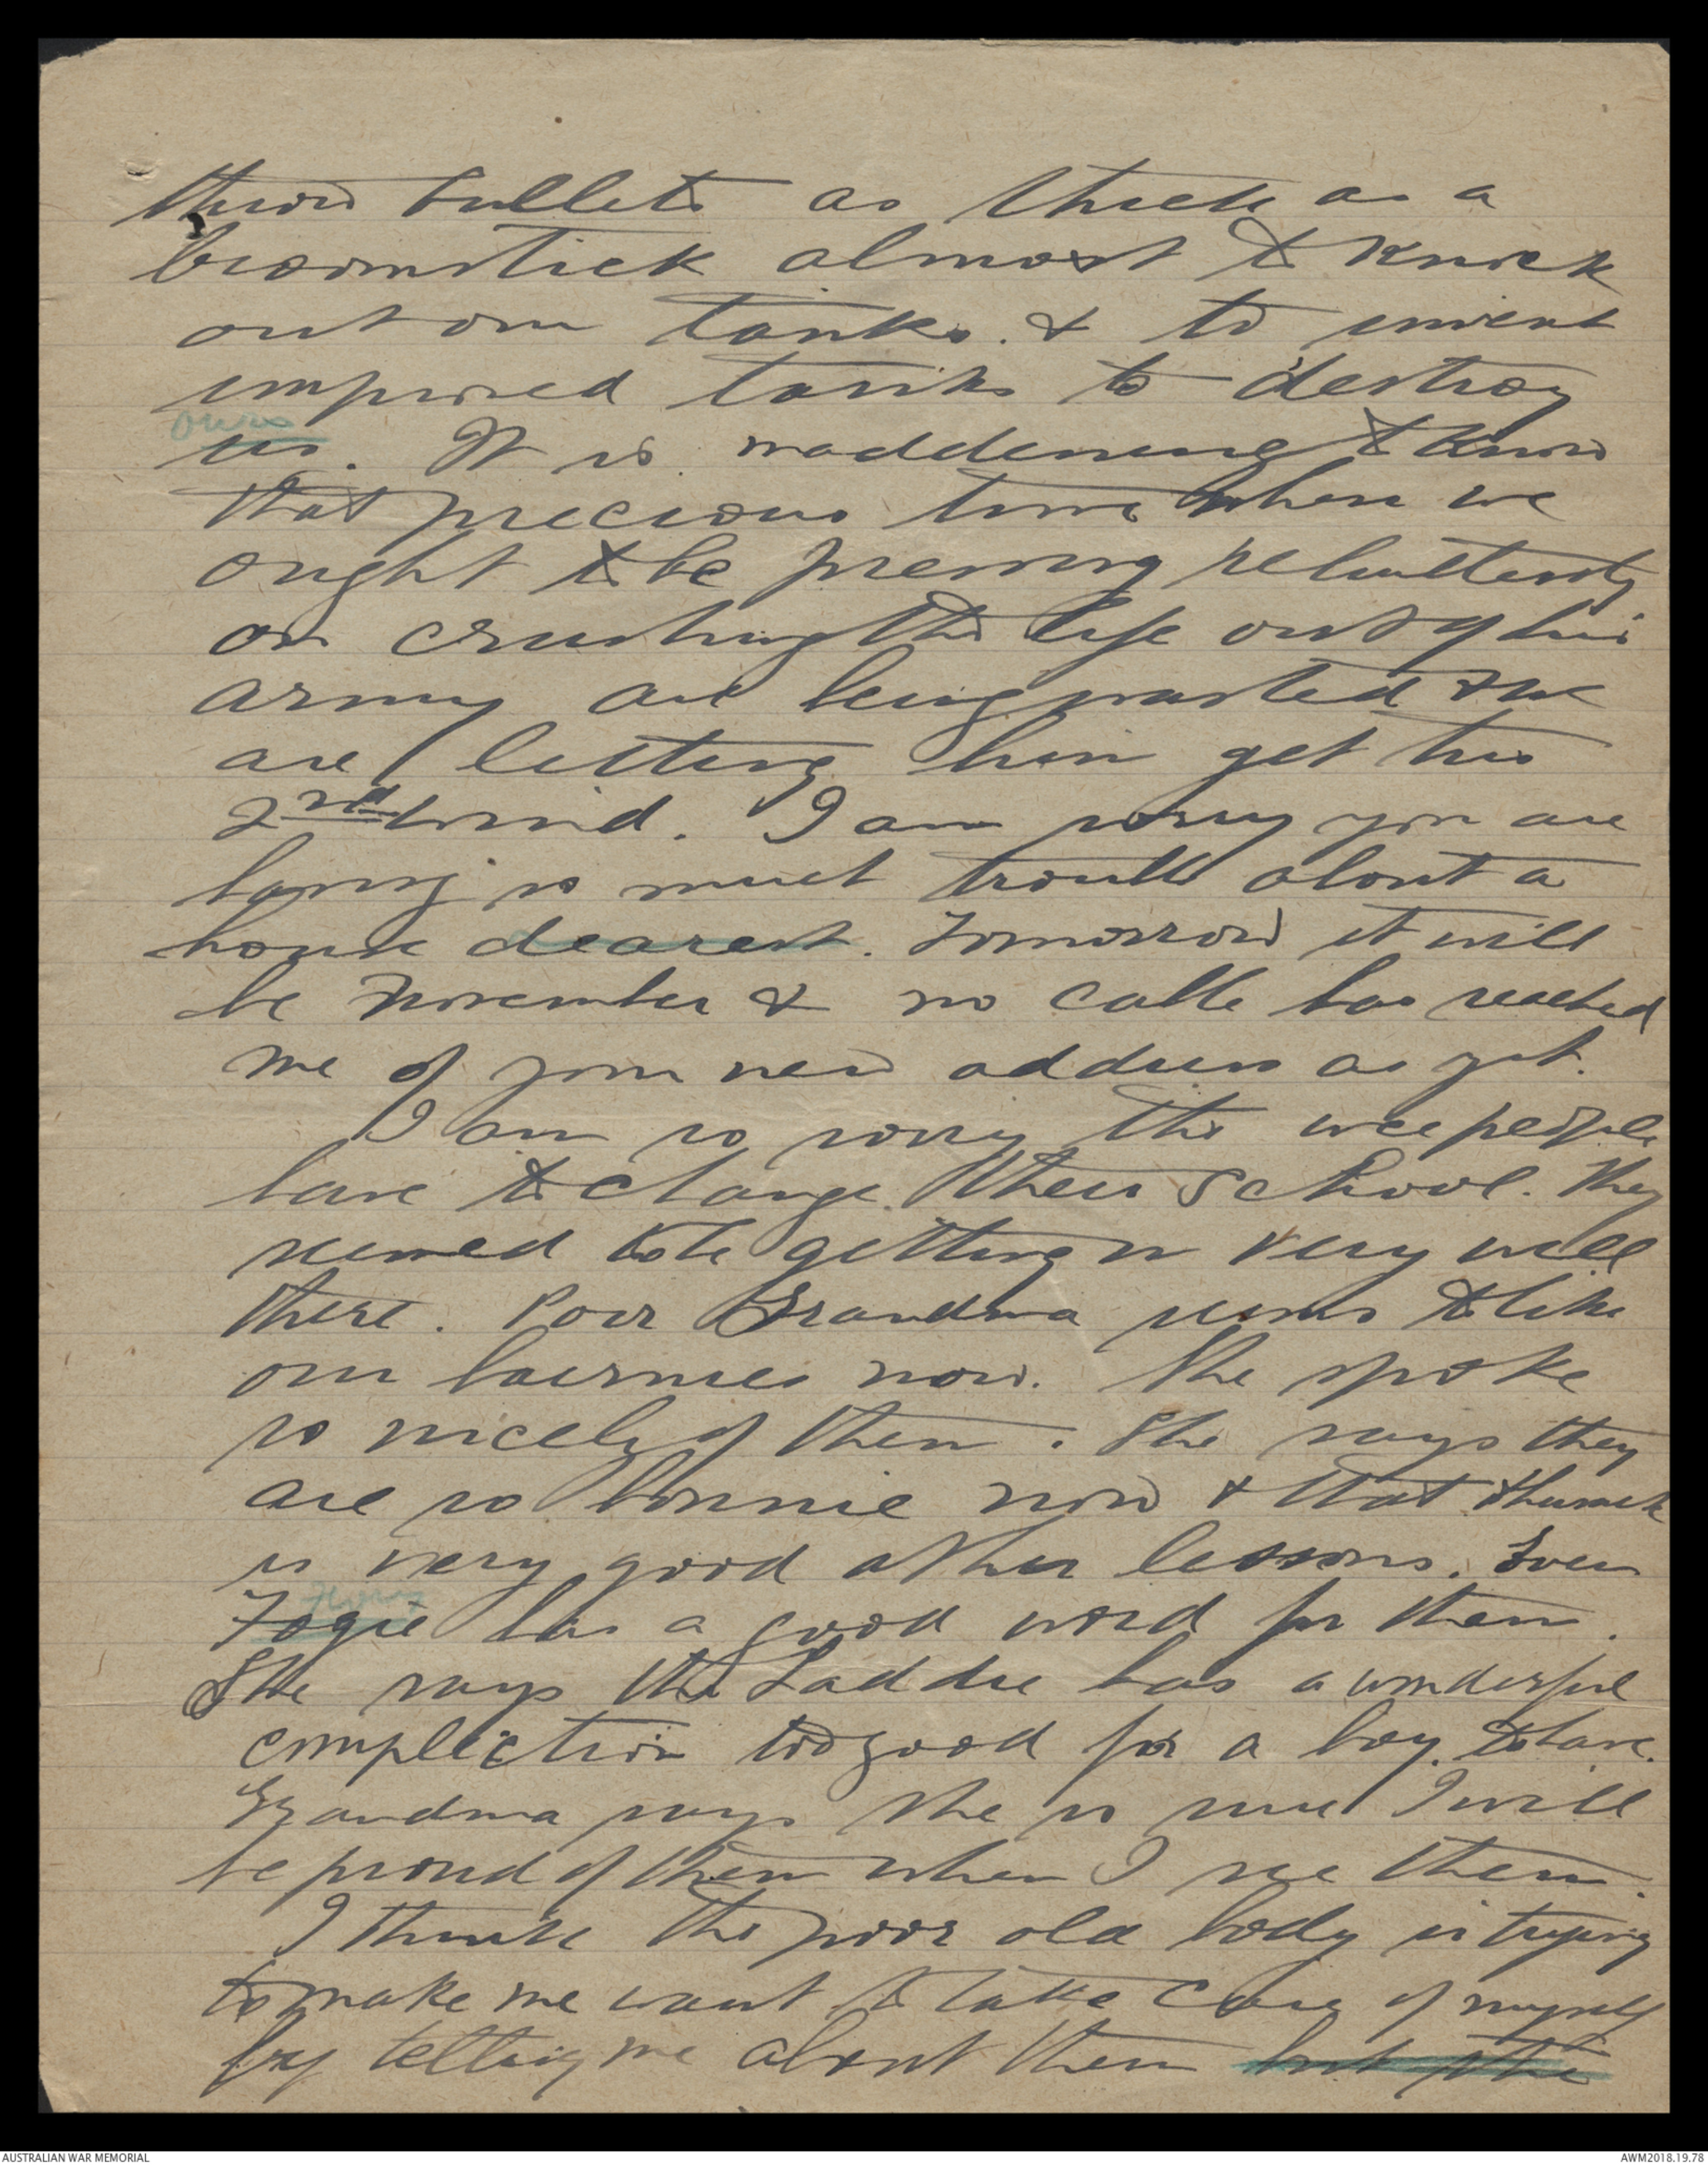 throw bullets as thick as a
broomstick almost to knock
out our tanks. & to invent
improved tanks to destroy
ours
us. It is maddening to know
that precious time when we
ought to be pressing relentlessly
on crushing the life out of his
army are being wasted & we
are letting him get his
2nd wind. I am sorry you are
having so much trouble about a
house dearest. Tomorrow it will
be November & no cable has reached
me of your new address as yet.
I am so sorry the wee people
have to change their School. They
seemed to be getting on very well
there. Poor Grandma seems to like
our bairnies now. She spoke
so nicely of them. She says they
are so bonnie now & that
is very good at her lessons. Even
Fogie has a good word for them.
She says the Laddie has a wonderful
complection too good for a boy to have.
Grandma says she is sure I will
be proud of them when I see them.
I think the poor old body is trying
to make me want to take care of myself
by telling me about them but she
AUSTRALIAN WAR MEMORIAL
AWM2018.19.78